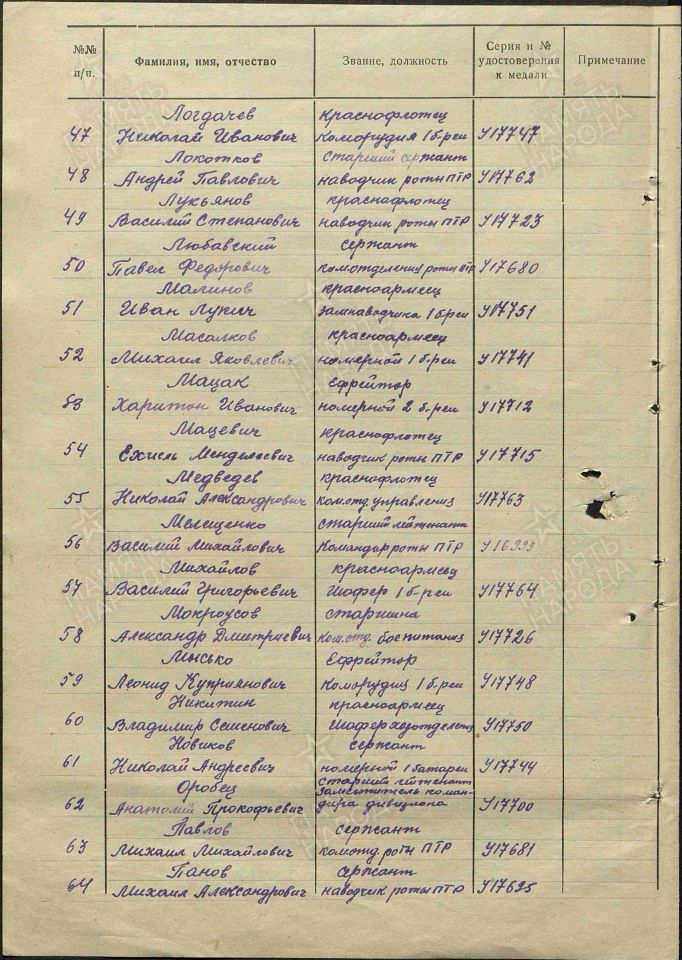 №№ п/п. Фамилия, имя, отчество Звание, должность Серия и № удостоверения к медали Примечание
Логдачев краснофлотец
47 Николай Иванович Коморудия 1 б-реи У17747
Локотков Старший сержант
48 Андрей Павлович наводчик роты ПТР У17762
Лукьянов краснофлотец
49 Василий Степанович наводчик роты ПТР У17723
Любавский сержант
50 Павел Федорович комотделения роты ПТР У17680
Малинов красноармеец
51 Иван Лукич Замнаводчика 1 б-реи У17751
Масалков красноармеец
52 Михаил Яковлевич номерной 1 б-реи У17741
Мацак Ефрейтор
53 Харитон Иванович номерной 2 б-реи У17712
Мацевич краснофлотец
54 Ехиель Менделевич наводчик роты ПТР У17715
Медведев краснофлотец
55 Николай Александрович Ком.отд. управления У17763
Мелещенко старший лейтенант
56 Василий Михайлович Командир роты ПТР
Михайлов красноармеец
57 Василий Григорьевич Шофер 1 б-реи У17764
Мокроусов старшина
58 Александр Дмитриевич Ком.отд. боепитания У17726
Мысько Ефрейтор
59 Леонид Куприянович Коморудия 1 б-реи У17748
Никитин красноармеец
60 Владимир Семенович Шофер У17750
Новиков сержант
61 Николай Андреевич номерной 1 батареи У17744
Оробец старший лейтенант
62 Анатолий Прокофьевич Заместитель коман-
дира дивизиона У17700
Павлов сержант
63 Михаил Михайлович комотд роты ПТР У17681
Панов сержант
64 Михаил Александрович наводчик роты ПТР У17625
ПАМЯТЬ НАРОДА
ПАМЯТЬ НАРОДА
ПАМЯТЬ НАРОДА
ПАМЯТЬ НАРОДА